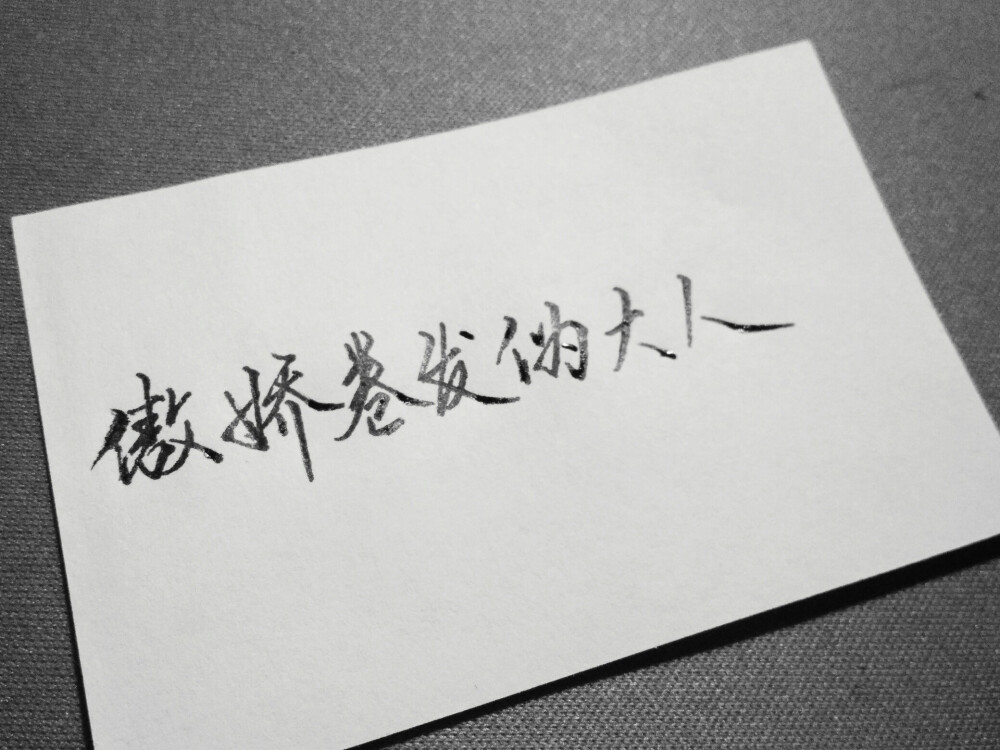 傲娇卷发伪大人